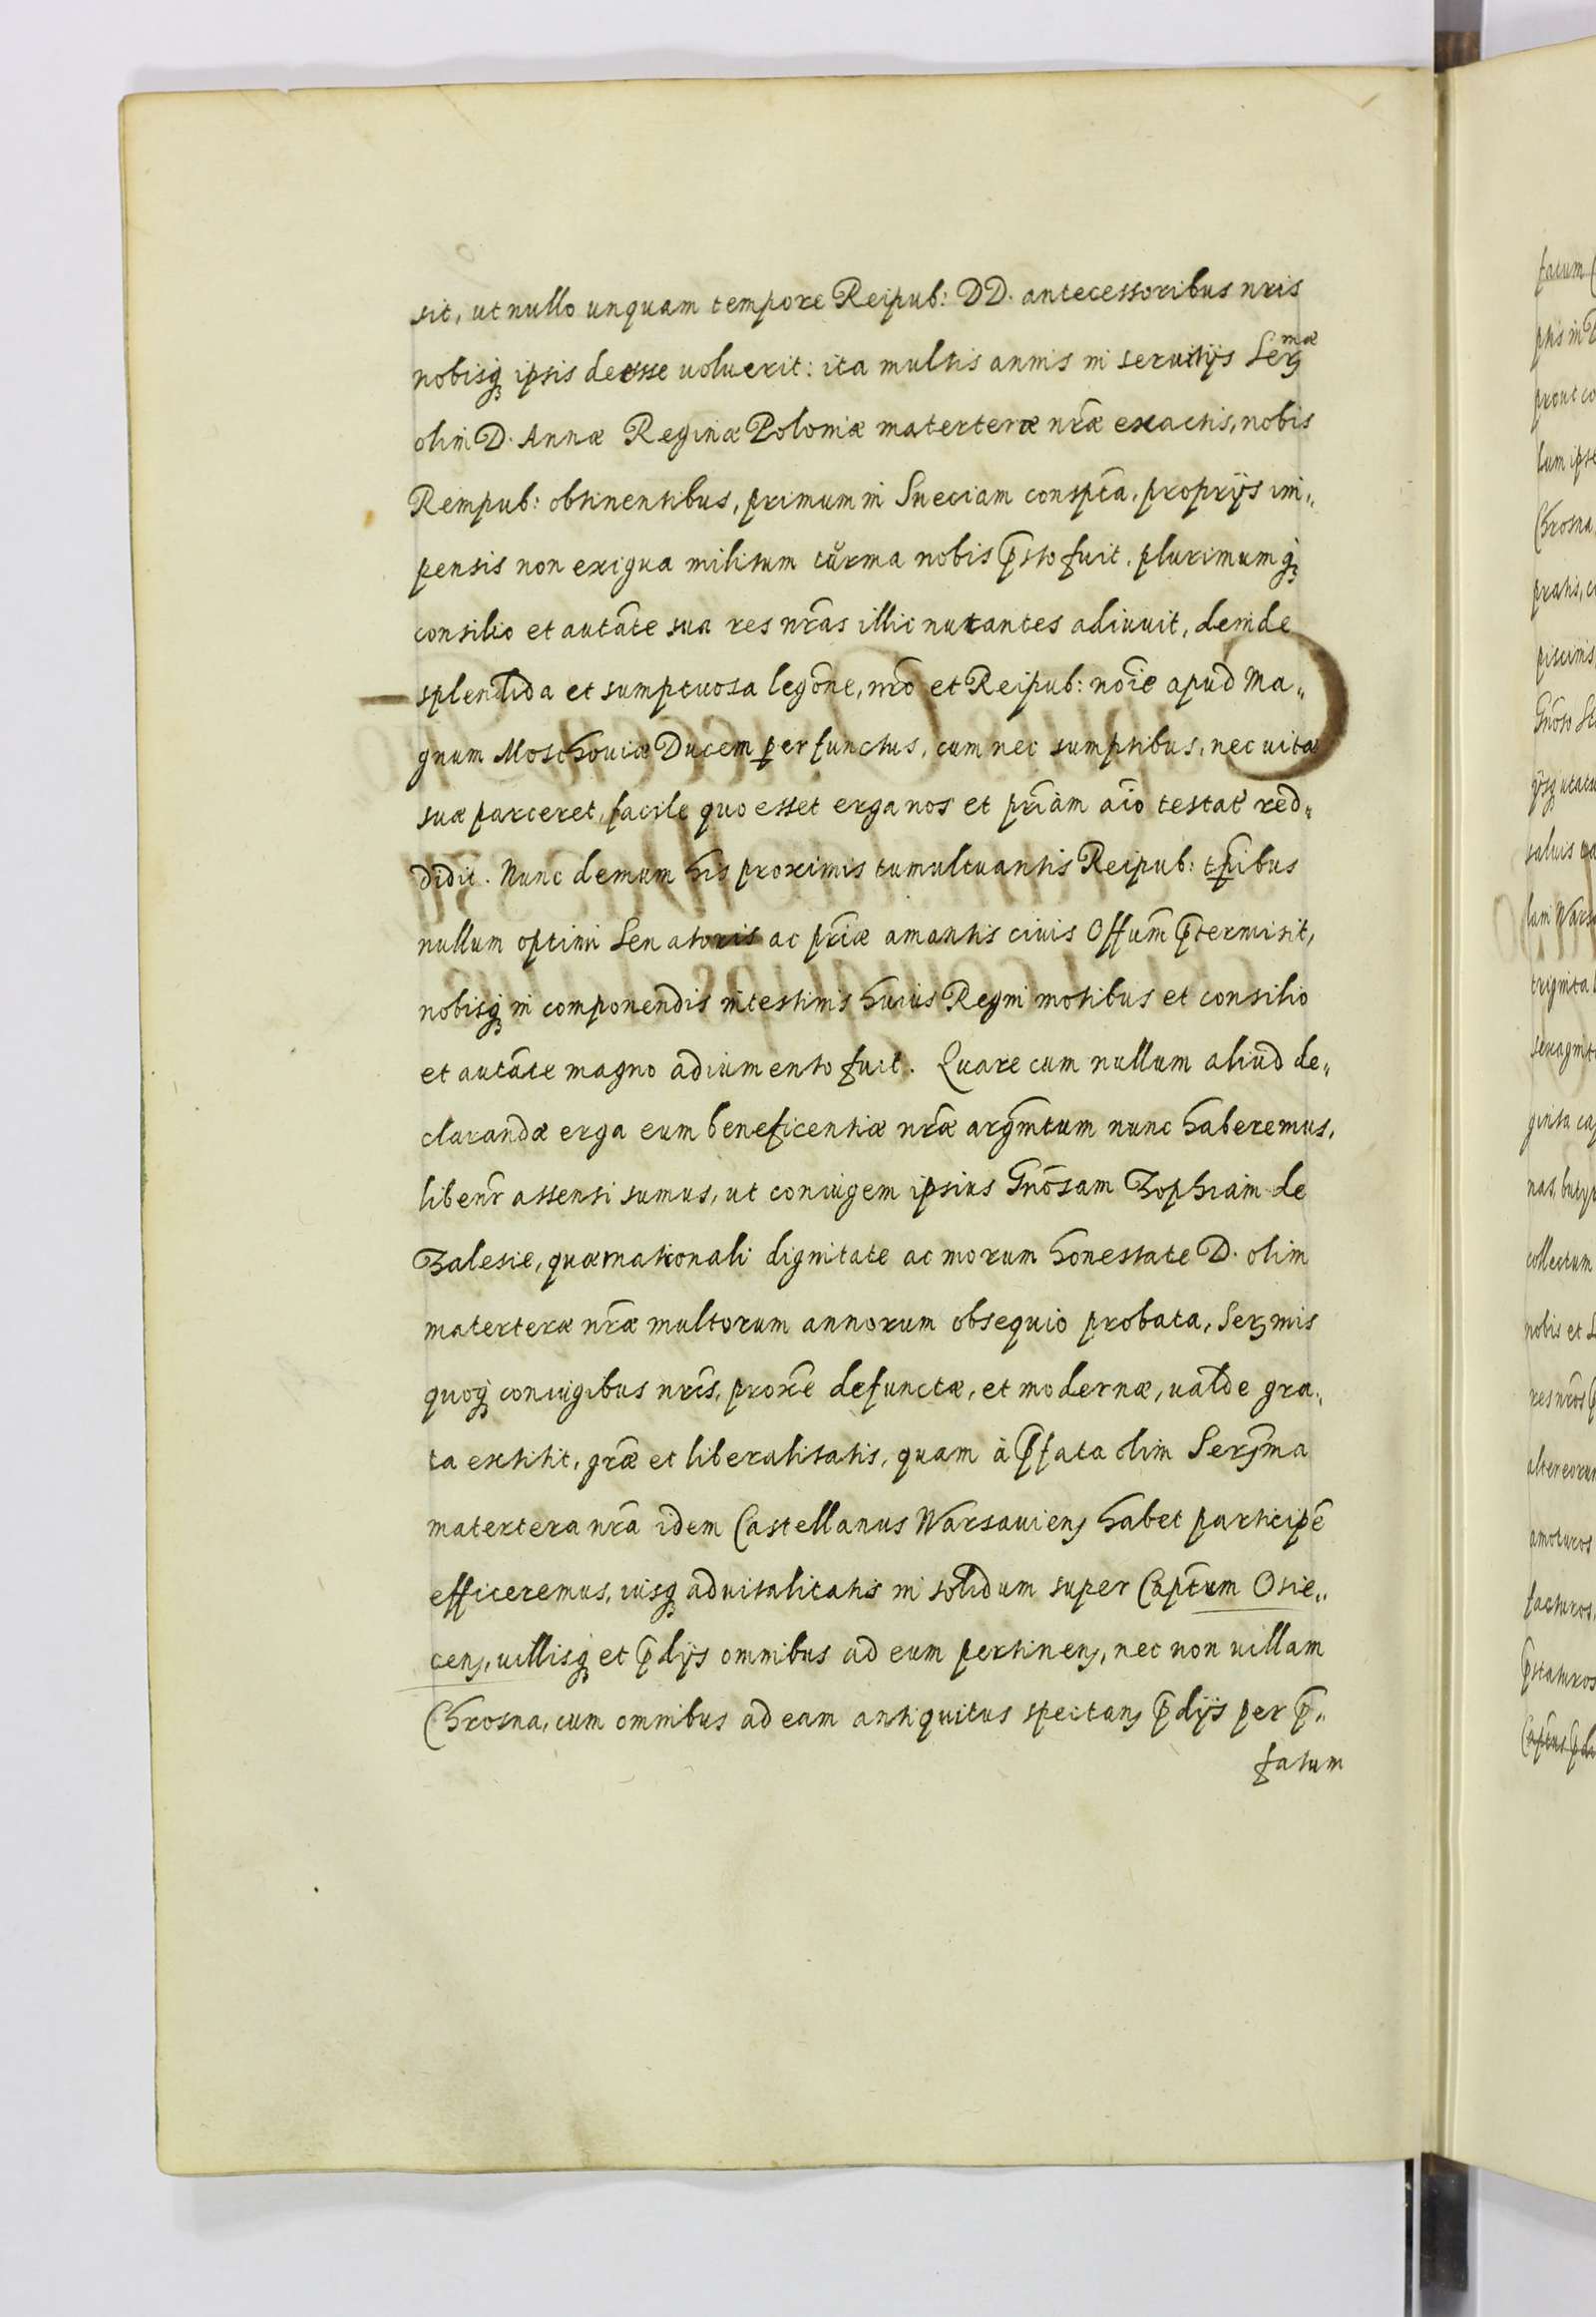 sit, ut nullo unquam tempore Reipub: DD. antecessoribus nris
nobisq̃ ipsis deesse uoluerit: ita multis annis in seruitijs Serᵐᵃᵉ
olim D. Annæ Reginæ Poloniæ materteræ nr̃æ exactis, nobis
Rempub: obtinentibus, primum in Sueciam conspc̃ta, proprijs im„
pensis non exigua militum tŭrma nobis p̃sto fuit, plurimumq̃
consilio et autãte sua res nr̃as illic nutantes adiuuit, deinde
splendida et sumptuosa legõne, nrõ et Reipub: noĩe apud Ma„
gnum Moschouiæ Ducem perfunctus, cum nec sumptibus, nec uitæ
suæ parceret, facile quo esset erga nos et pr̃iam aĩo testat̃ red„
didit. Nunc demum his proximis tumultuantis Reipub: tp̃ibus
nullum optimi Senatoris ac pr̃iæ amantis ciuis Offum̃ p̃termisit,
nobisq̃ in componendis intestinis huius Regni motibus et consilio
et autãte magno adiumento fuit. Quare cum nullum aliud de„
clarandæ erga eum beneficentiæ nr̃æ argm̃tum nunc haberemus,
libenr̃ assensi sumus, ut coniugem ipsius Gnõsam Zophiam de
Zalesie, quæ nationali dignitate ac morum honestate D. olim
materteræ nr̃æ multorum annorum obsequio probata, Serᵹmis
quoq̃ coniugibus nrĩs, proxẽ defunctæ, et modernæ, ualde gra„
ta extitit, gr̃æ et liberalitatis, quam à p̃fata olim Serᵹm̃a
matertera nr̃a idem Castellanus Warsauienᵹ habet participẽ
efficeremus, iusq̃ aduitalitatis in solidum super Capt̃um Osie„
cenᵹ, uillisq̃ et p̃dijs omnibus ad eum pertinenᵹ, nec non uillam
Chrosna, cum omnibus ad eam antiquitus spectanᵹ p̃dijs per p̃„
fatum